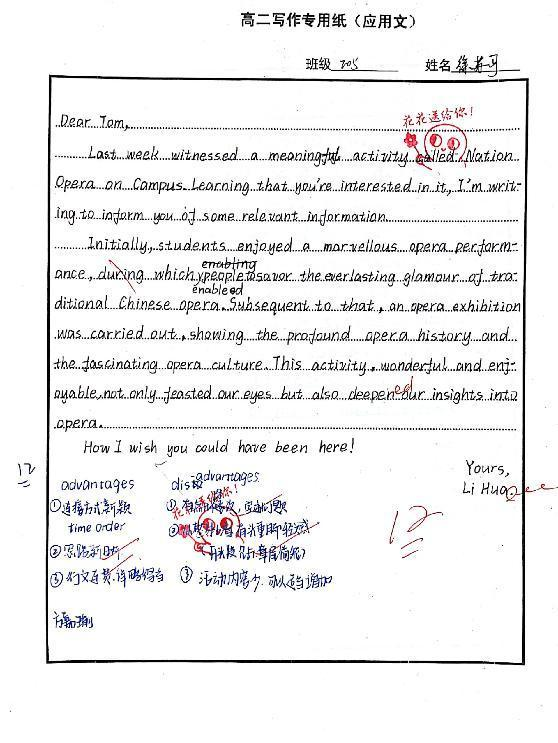 高二写作专用纸（应用文）
班级 205 姓名
花花送给你!
Dear Tom,
Last week witnessed a meaningful activity called Nation
Opera on Campus. Learning that you're interested in it, I'm writ-
ing to inform you of some relevant information.
Initially, students enjoyed a marvellous opera perform-
enabling
ance, during which people to savor the everlasting glamour of tra-
enabled
ditional Chinese opera. Subsequent to that, an opera exhibition
was carried out, showing the profound opera history and
the fascinating opera culture. This activity, wonderful and enj-
oyable, not only feasted our eyes but also deepened our insights into
opera.
How I wish you could have been here!
12
Yours,
Li Hua
advantages disadvantages
花花送给你!
①连接方式新颖
time order
12
②思路新
③ 详略得当 ③ 活动内容少,可以适当增加